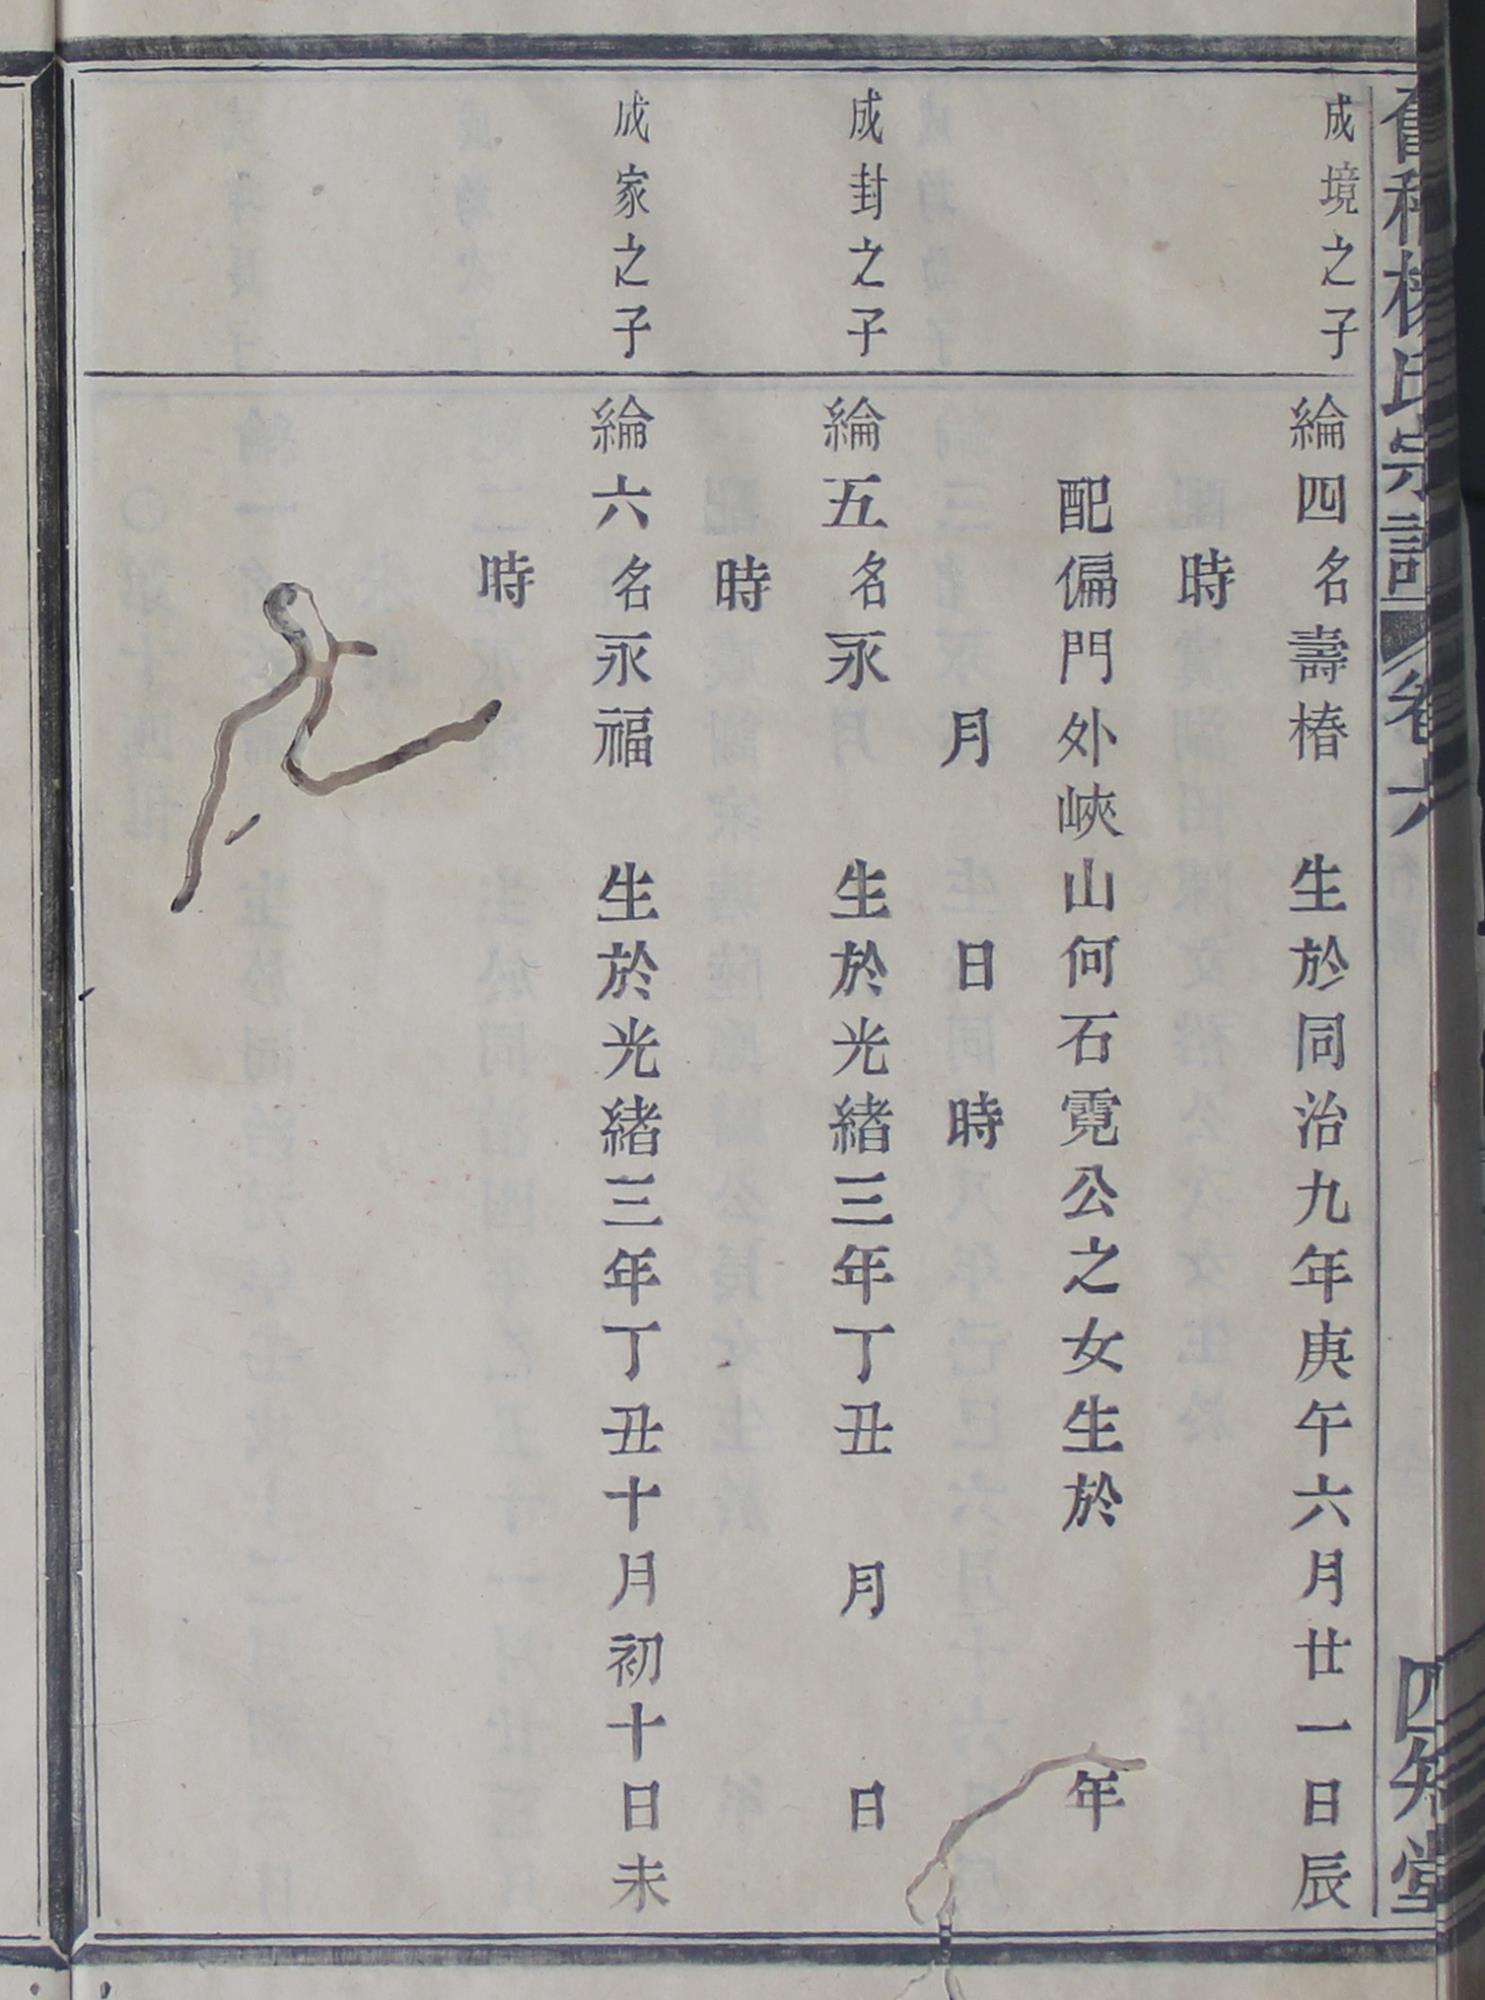 楊氏宗譜 卷六 四知堂
成境之子
綸四名壽椿 生於同治九年庚午六月廿一日辰
時
配偏門外峽山何石霓公之女生於 年
月 日 時
成封之子
綸五名永 生於光緒三年丁丑 月 日
時
成家之子
綸六名永福 生於光緒三年丁丑十月初十日未
時